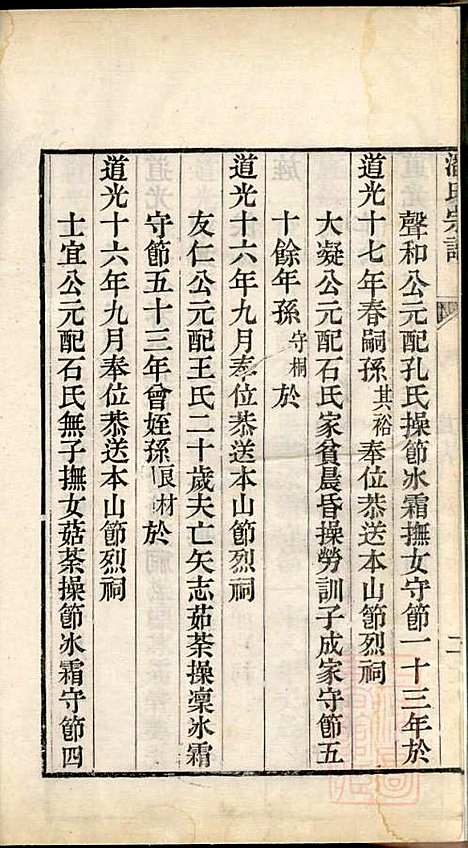 潘氏宗譜
聲和公元配孔氏操節冰霜撫女守節一十三年於
道光十七年春嗣孫其裕奉位恭送本山節烈祠
大凝公元配石氏家貧晨昏操勞訓子成家守節五
十餘年孫守桐於
道光十六年九月奉位恭送本山節烈祠
友仁公元配王氏二十歲夫亡矢志茹荼操凜冰霜
守節五十三年會姪孫良材於
道光十六年九月奉位恭送本山節烈祠
士宜公元配石氏無子撫女茹荼操節冰霜守節四